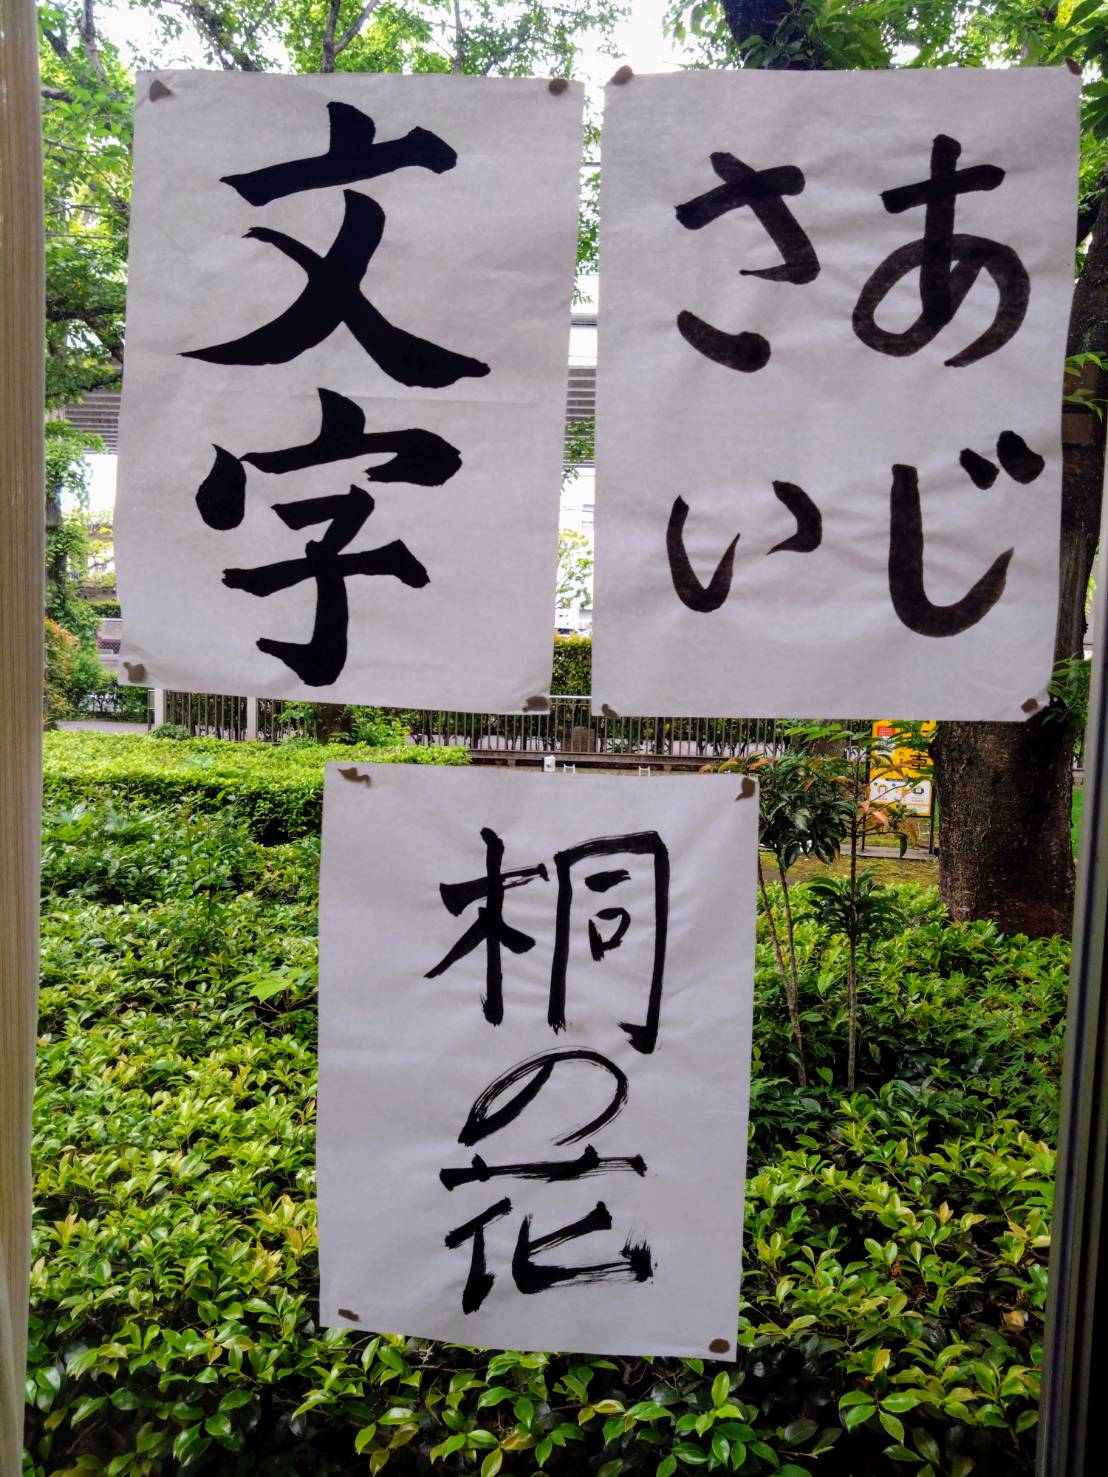 あじ
さい
文字
桐の花